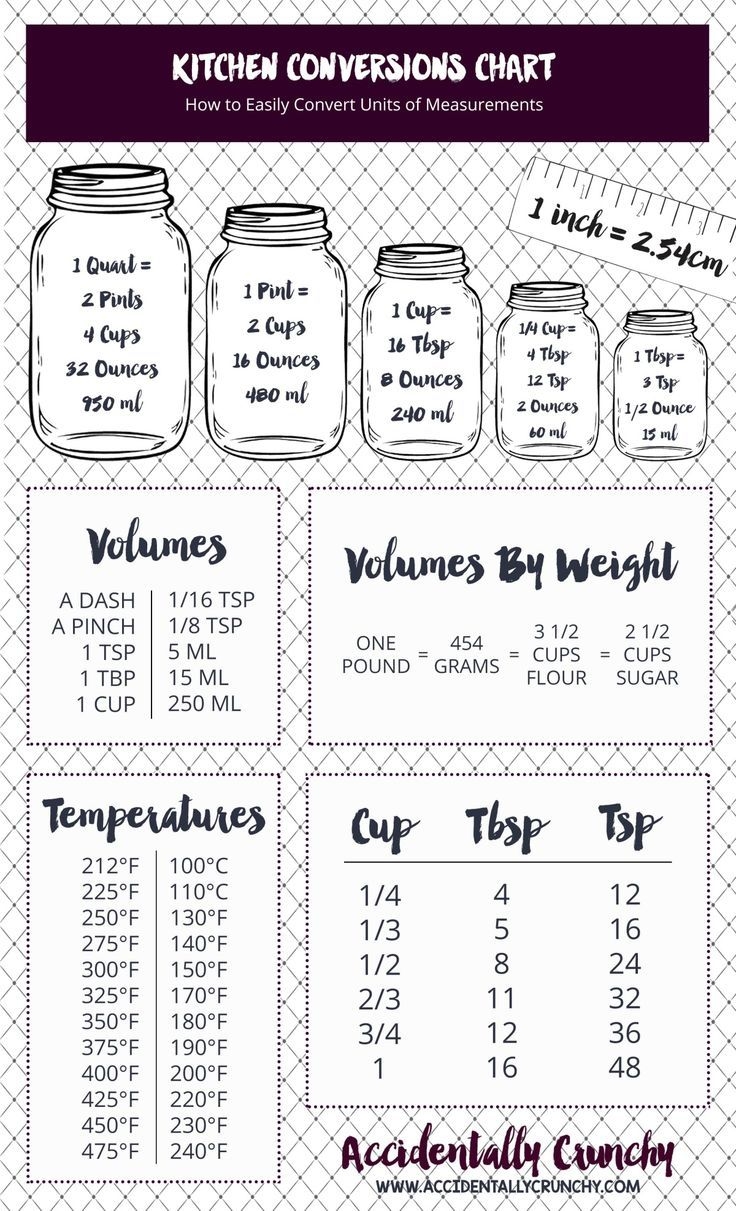 KITCHEN CONVERSIONS CHART
How to Easily Convert Units of Measurements
1 inch = 2.54cm
1 Quart =
2 Pints
4 Cups
32 Ounces
950 ml
1 Pint =
2 Cups
16 Ounces
480 ml
1 Cup=
16 Tbsp
8 Ounces
240 ml
1/4 Cup=
4 Tbsp
12 Tsp
2 Ounces
60 ml
1 Tbsp=
3 Tsp
1/2 Ounce
15 ml
Volumes
A DASH 1/16 TSP
A PINCH 1/8 TSP
1 TSP 5 ML
1 TBP 15 ML
1 CUP 250 ML
Volumes By Weight
ONE POUND = 454 GRAMS = 3 1/2 CUPS FLOUR = 2 1/2 CUPS SUGAR
Temperatures
212°F 100°C
225°F 110°C
250°F 130°F
275°F 140°F
300°F 150°F
325°F 170°F
350°F 180°F
375°F 190°F
400°F 200°F
425°F 220°F
450°F 230°F
475°F 240°F
Cup Tbsp Tsp
1/4 4 12
1/3 5 16
1/2 8 24
2/3 11 32
3/4 12 36
1 16 48
Accidentally Crunchy
WWW.ACCIDENTALLYCRUNCHY.COM